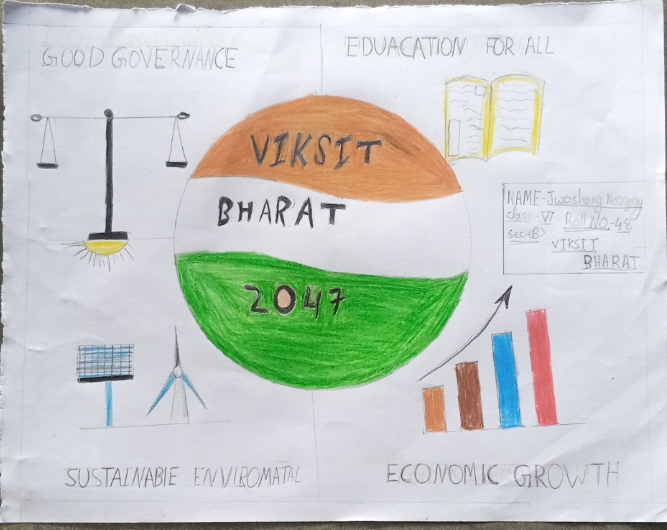 GOOD GOVERNANCE
EDUACATION FOR ALL
VIKSIT
BHARAT
2047
NAME-Jwoshang
class-VI Roll No.-48
sec-(B)
VIKSIT
BHARAT
SUSTAINABIE ENVIROMATAL
ECONOMIC GROWTH